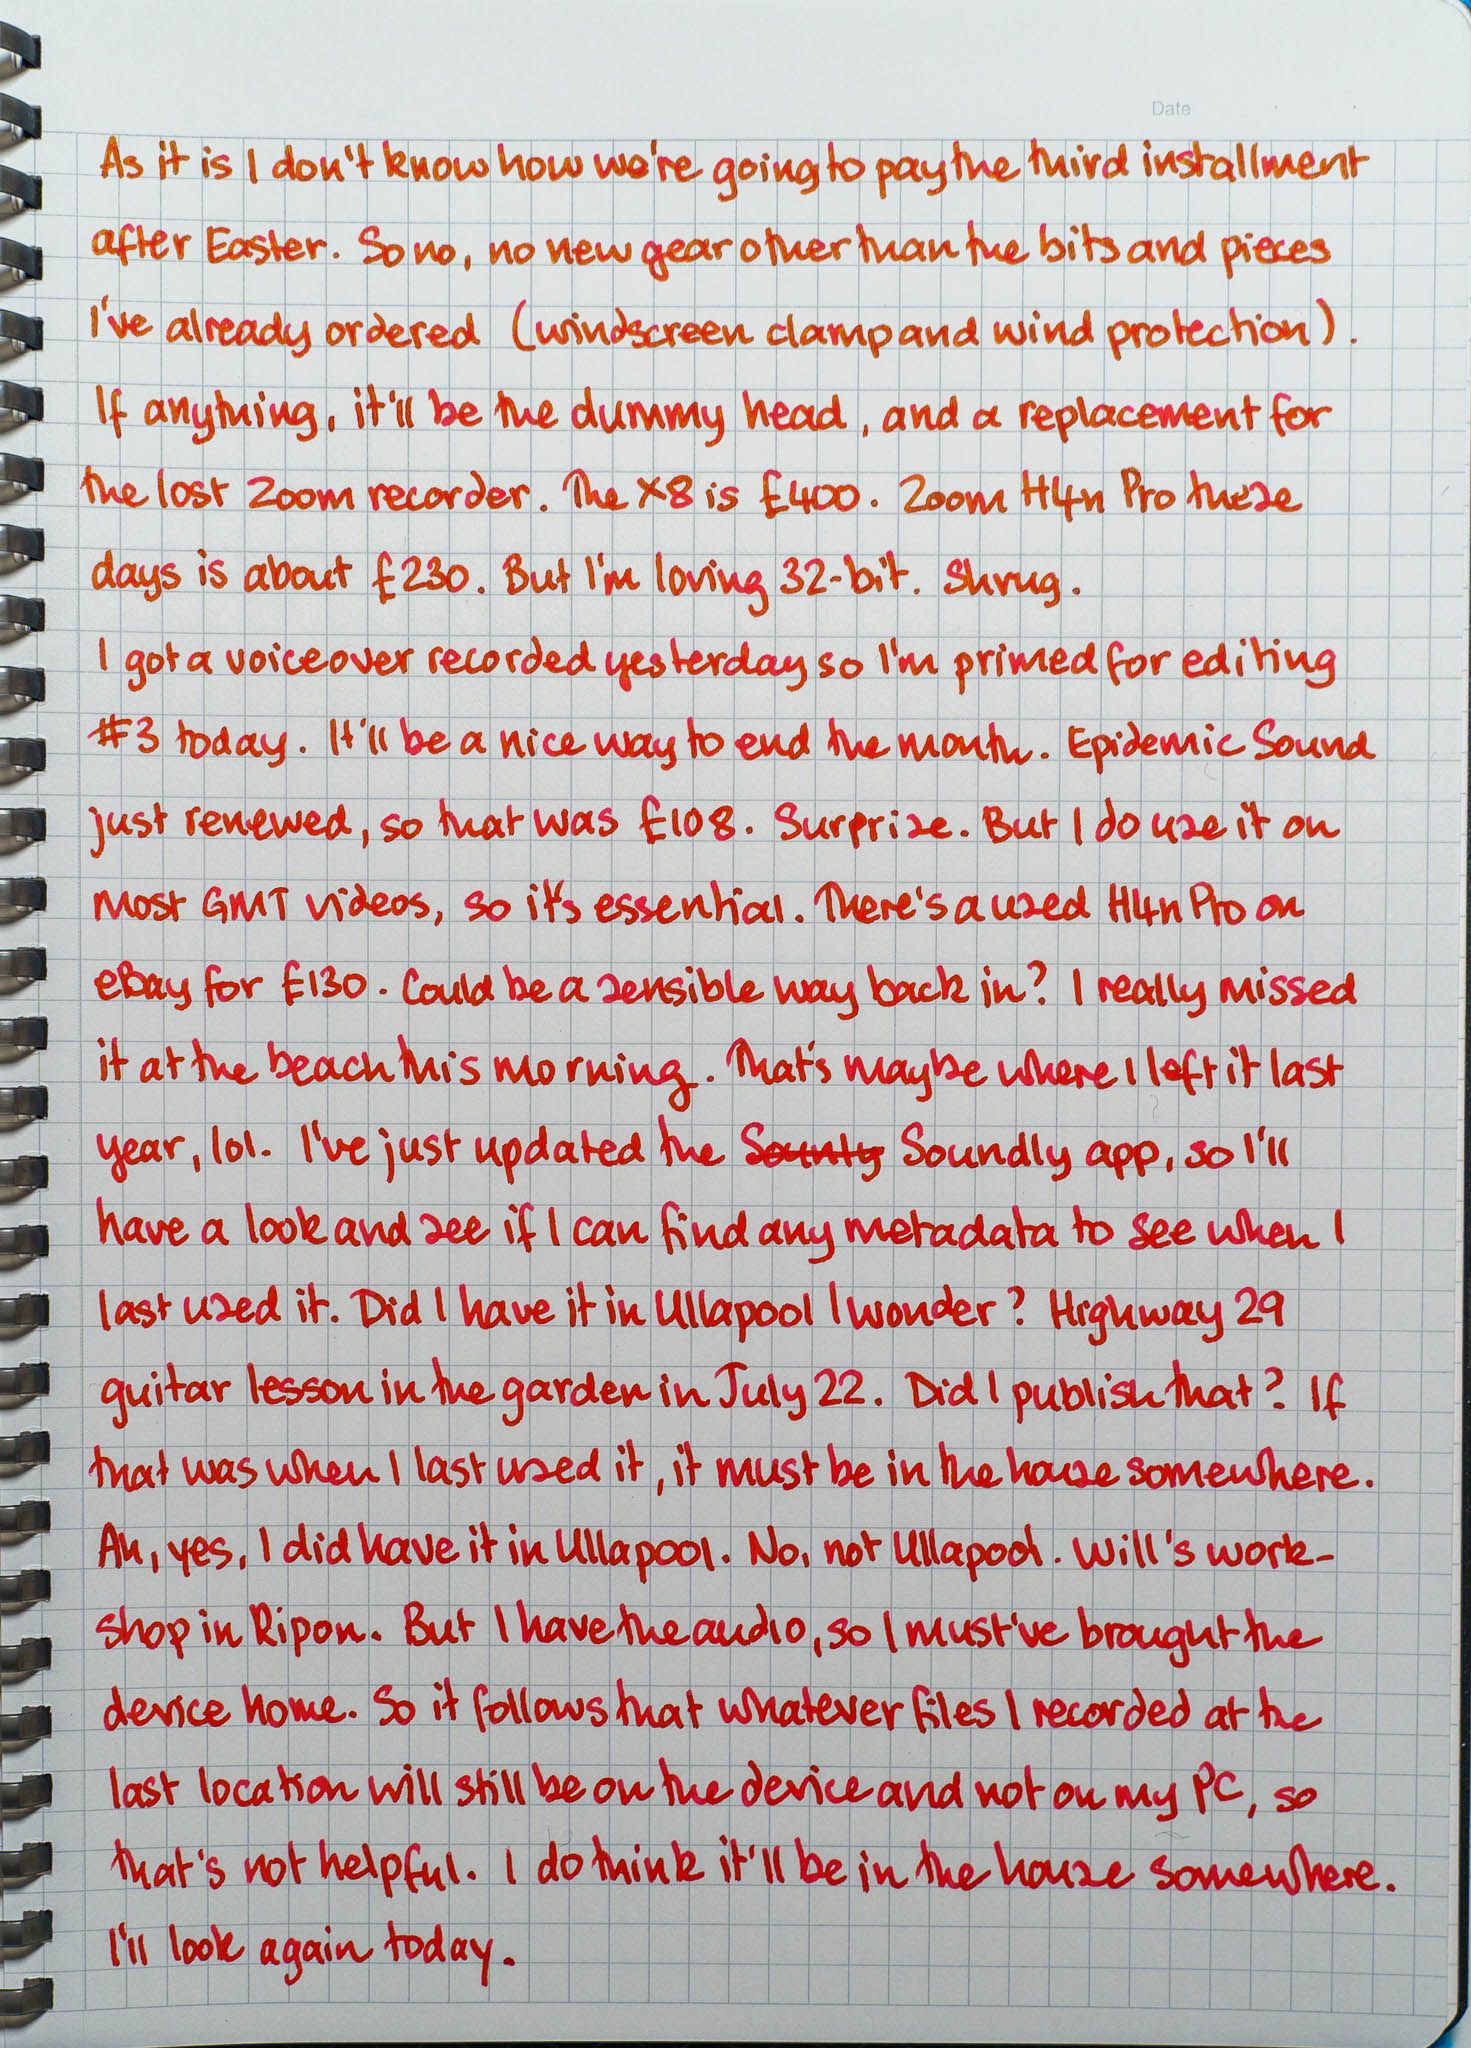 Date
As it is I don't know how we're going to pay the third installment
after Easter. So no, no new gear other than the bits and pieces
I've already ordered (windscreen clamp and wind protection).
If anything, it'll be the dummy head, and a replacement for
the lost Zoom recorder. The X8 is £400. Zoom H4n Pro these
days is about £230. But I'm loving 32-bit. Shrug.
I got a voiceover recorded yesterday so I'm primed for editing
#3 today. It'll be a nice way to end the month. Epidemic Sound
just renewed, so that was £108. Surprise. But I do use it on
most GMT videos, so it's essential. There's a used H4n Pro on
eBay for £130. Could be a sensible way back in? I really missed
it at the beach this morning. That's maybe where I left it last
year, lol. I've just updated the Sounty Soundly app, so I'll
have a look and see if I can find any metadata to see when I
last used it. Did I have it in Ullapool I wonder? Highway 29
guitar lesson in the garden in July 22. Did I publish that? If
that was when I last used it, it must be in the house somewhere.
Ah, yes, I did have it in Ullapool. No, not Ullapool. Will's work-
shop in Ripon. But I have the audio, so I must've brought the
device home. So it follows that whatever files I recorded at the
last location will still be on the device and not on my PC, so
that's not helpful. I do think it'll be in the house somewhere.
I'll look again today.